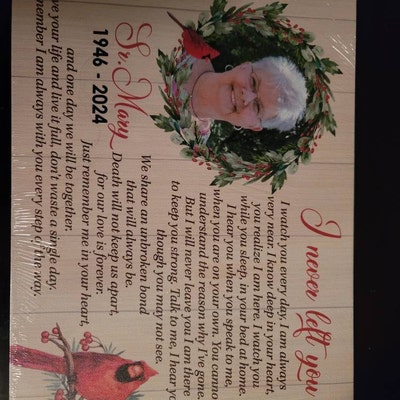 I never left you
I watch you every day, I am always
very near. I know deep in your heart,
you realize I am here. I watch you
while you sleep, in your bed at home.
I hear you when you speak to me,
when you are on your own. You cannot
understand the reason why I've gone.
But I will never leave you I am there
to keep you strong. Talk to me, I hear you
though you may not see.
We share an unbroken bond
that will always be.
Death will not keep us apart,
for our love is forever.
Just remember me in your heart,
and one day we will be together.
your life and live it full, don't waste a single day.
remember I am always with you every step of the way.
Sr. Mary
1946 - 2024